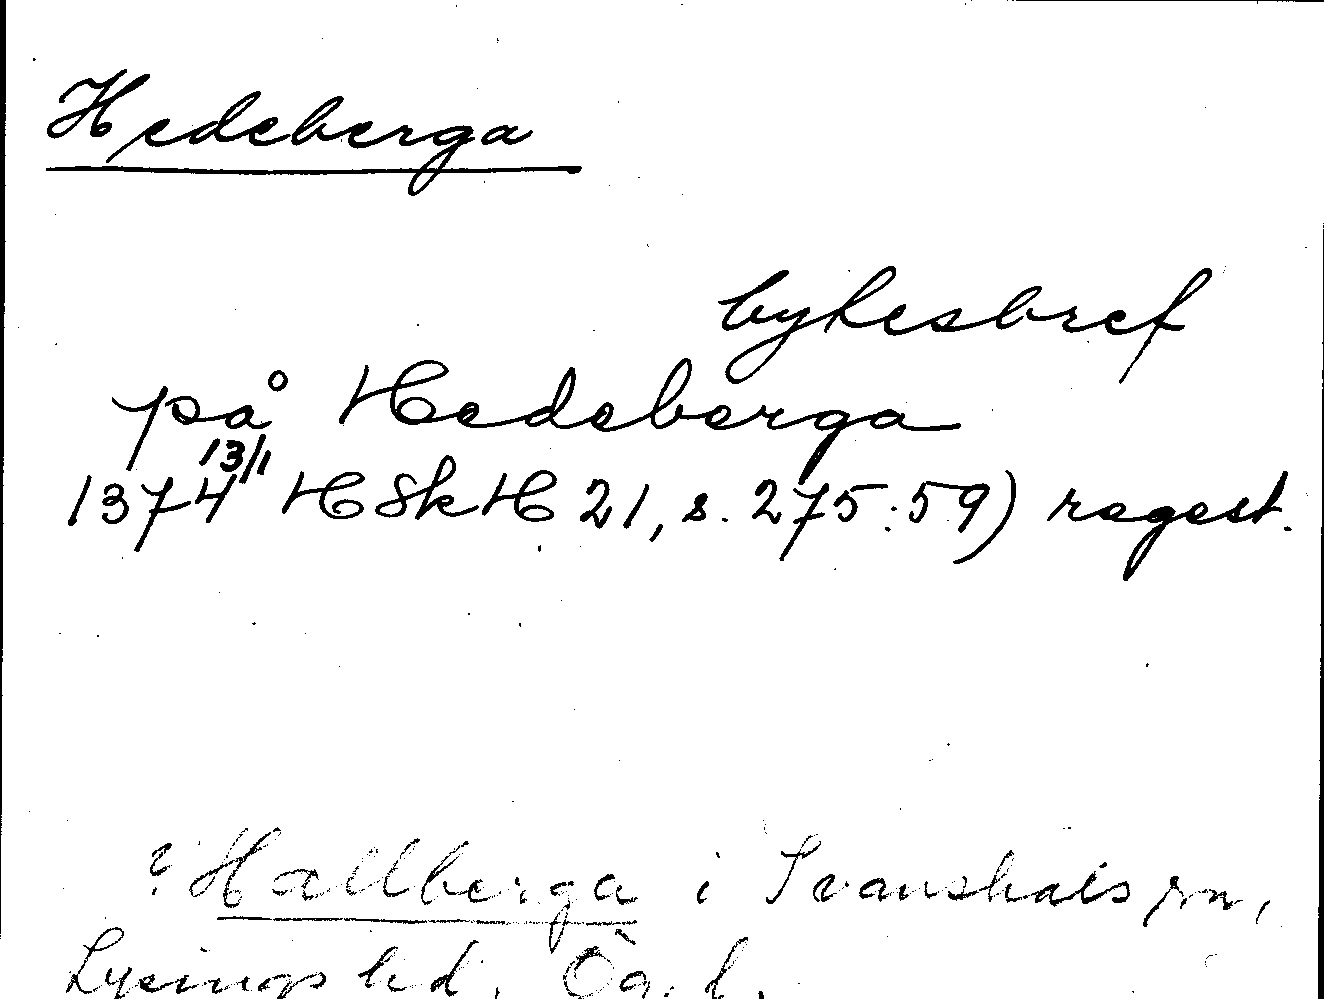 Hedeberga
bytesbref
på Hedeberga
13/1
1374 HSkH 21, s. 275:59) regest.
? Hallberga i Svanshals sn,
Lysings hd, Ög. l.